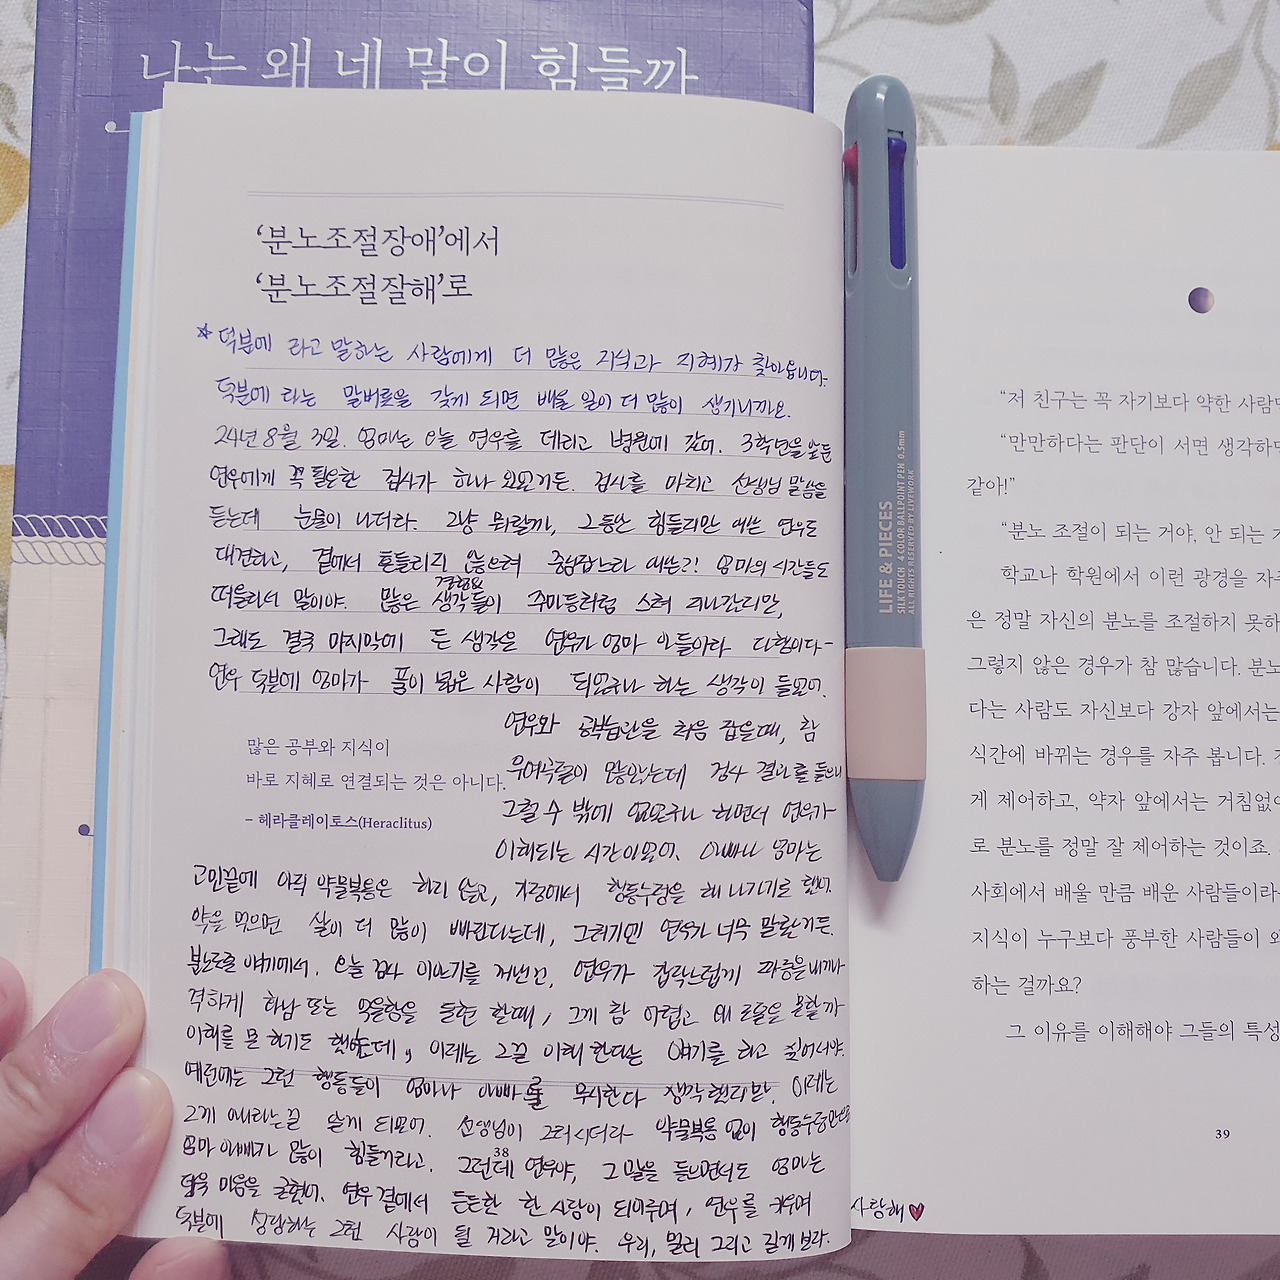 나는 왜 네 말이 힘들까
‘분노조절장애’에서
‘분노조절잘해’로
*덕분에 라고 말하는 사람에게 더 많은 지식과 지혜가 찾아옵니다-
덕분에 라는 말버릇을 갖게 되면 배울 일이 더 많이 생기니까요.
24년 8월 3일. 엄마는 오늘 연우를 데리고 병원에 갔어. 3학년을 앞둔
연우에게 꼭 필요한 검사가 하나 있었거든. 검사를 마치고 선생님 말씀을
듣는데 눈물이 나더라. 그냥 뭐랄까, 그동안 힘들지만 애쓴 연우도
대견하고, 곁에서 흔들리지 않으려 중심잡느라 애쓴?! 엄마의 시간들도
떠올라서 말이야. 많은 생각들이 주마등처럼 스쳐 지나간지만,
경험과
그래도 결국 마지막에 든 생각은 연우가 엄마 아들이라 다행이다-
연우 덕분에 엄마가 품이 넓은 사람이 되었구나 하는 생각이 들었어.
연우와 공부습관을 처음 잡을때, 참
우여곡절이 많았는데 검사 결과를 들으니
그럴 수 밖에 없었구나 하면서 연우가
이해되는 시간이었어. 아빠나 엄마는
많은 공부와 지식이
바로 지혜로 연결되는 것은 아니다.
– 헤라클레이토스(Heraclitus)
고민끝에 아직 약물복용은 하지 않고, 가정에서 행동수정을 해 나가기로 했어.
약을 먹으면 살이 더 많이 빠진다는데, 그러기엔 연우가 너무 말랐거든.
분노조절 얘기에서. 오늘 검사 이야기를 꺼낸건, 연우가 갑작스럽게 짜증을내거나
격하게 화남 또는 억울함을 표현 할때, 그게 참 어렵고 왜 조절을 못할까
이해를 못 하기도 했었는데, 이제는 그걸 이해한다는 얘기를 하고 싶어서야.
예전에는 그런 행동들이 엄마나 아빠를 무시한다 생각했지만, 이제는
그게 아니라는걸 알게 되었어. 선생님이 그러시더라 약물복용 없이 행동수정만으로
엄마 아빠가 많이 힘들거라고. 그런데 연우야, 그 말을 들으면서도 엄마는
더욱 마음을 굳혔어. 연우 곁에서 든든한 한 사람이 되어주며, 연우를 키우며
덕분에 성장하는 그런 사람이 될 거라고 말이야. 우리, 멀리 그리고 길게 보자.
사랑해♥
38
LIFE & PIECES
SILK TOUCH 4 COLOR BALLPOINT PEN 0.5mm
ALL RIGHTS RESERVED BY LIVEWORK
“저 친구는 꼭 자기보다 약한 사람
“만만하다는 판단이 서면 생각하
같아!”
“분노 조절이 되는 거야, 안 되는
학교나 학원에서 이런 광경을 자
은 정말 자신의 분노를 조절하지 못하
그렇지 않은 경우가 참 많습니다. 분노
다는 사람도 자신보다 강자 앞에서는
식간에 바뀌는 경우를 자주 봅니다.
게 제어하고, 약자 앞에서는 거침없이
로 분노를 정말 잘 제어하는 것이죠.
사회에서 배울 만큼 배운 사람들이라
지식이 누구보다 풍부한 사람들이 왜
하는 걸까요?
그 이유를 이해해야 그들의 특성
39